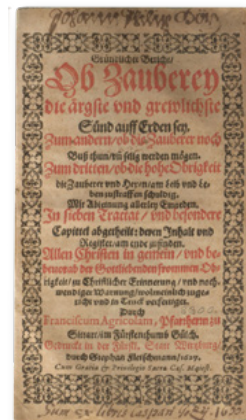 Gründtlicher Bericht/
Ob Zauberey
die ärgste vnd grewlichste
Sünd auff Erden sey.
Zum andern/ ob die Zauberer noch
Buß thun/ vñ selig werden mögen.
Zum dritten/ ob die hohe Obrigkeit
die Zauberer vnd Hexen/ am Leib vnd Le-
ben zustraffen schuldig.
Mit Ableinung allerley Einreden.
In sieben Tractat/ vnd besondere
Capittel abgetheilt: deren Inhalt vnd
Register/ am ende zufinden.
Allen Christen in gemein/ vnd be-
bevorab der Gottliebenden frommen Ob-
rigkeit/ zu Christlicher Erinnerung/ vnd noth-
wendiger Warnung/ wolmeinlich zuge-
richt vnd in Truck verfertiget.
Durch
Franciscum Agricolam, Pfarrherrn zu
Sittart/ im Fürstenthumb Gülch.
Gedruckt in der Fürstl. Statt Würtzburg/
durch Stephan Fleischmann/
Cum Gratia & Privilegio Sacræ Cæs. Maiest.
Sum ex libris Caspari